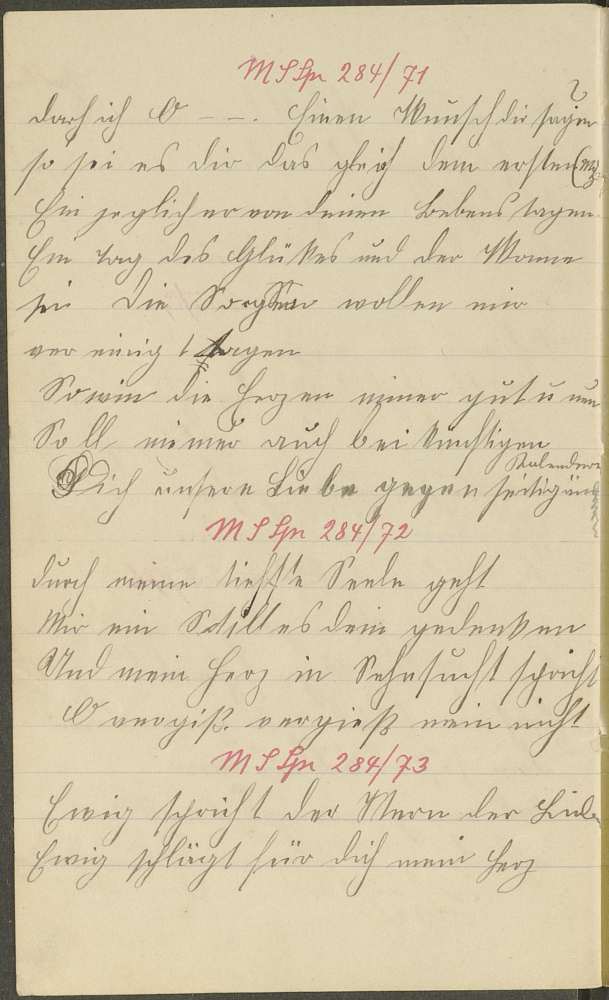 MSSpr 284/71
darf ich O – – . Einen Wunsch dir sagen
so sei es dir das gleich dem ersten
Ein jeglicher von deinen Lebens tagen
Ein tag des Glükes und der Wonne
sei die Sorgen wollen wir
ver einigt tragen
Sowie die Herzen immer gut u nen
Soll immer auch bei künftigen
Kalendern
Dich unsere Liebe gegen seitig
MSSpr 284/72
durch meine tiefste Seele geht
Mir ein Stilles dein gedenken
Und mein Herz in Sehnsucht spricht
O vergiß. vergieß mein nicht
MSSpr 284/73
Ewig spricht der Stern der Liebe
Ewig schlägt für dich mein Herz